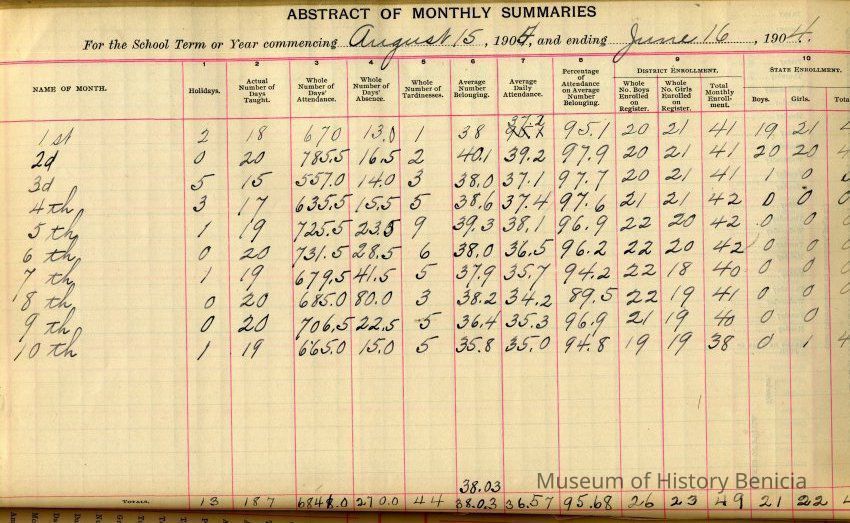 ABSTRACT OF MONTHLY SUMMARIES
For the School Term or Year commencing August 15, 1904, and ending June 16, 1904.
1 2 3 4 5 6 7 8 9 10
NAME OF MONTH. Holidays. Actual Number of Days Taught. Whole Number of Days' Attendance. Whole Number of Days' Absence. Whole Number of Tardinesses. Average Number Belonging. Average Daily Attendance. Percentage of Attendance on Average Number Belonging. DISTRICT ENROLLMENT. Whole No. Boys Enrolled on Register. Whole No. Girls Enrolled on Register. Total Monthly Enrollment. STATE ENROLLMENT. Boys. Girls. Tota
37.2
1st 2 18 670 13.0 1 38 95.1 20 21 41 19 21 4
2d 0 20 785.5 16.5 2 40.1 39.2 97.9 20 21 41 20 20 4
3d 5 15 557.0 14.0 3 38.0 37.1 97.7 20 21 41 1 0
4th 3 17 635.5 15.5 5 38.6 37.4 97.6 21 21 42 0 0 0
5th 1 19 725.5 23.5 9 39.3 38.1 96.9 22 20 42 0 0 0
6th 0 20 731.5 28.5 6 38.0 36.5 96.2 22 20 42 0 0 0
7th 1 19 679.5 41.5 5 37.9 35.7 94.2 22 18 40 0 0 0
8th 0 20 685.0 80.0 3 38.2 34.2 89.5 22 19 41 0 0 0
9th 0 20 706.5 22.5 5 36.4 35.3 96.9 21 19 40 0 0 0
10th 1 19 665.0 15.0 5 35.8 35.0 94.8 19 19 38 0 1
38.03
TOTALS. 13 187 6841.0 270.0 44 38.03 36.57 95.68 26 23 49 21 22 4
Museum of History Benicia